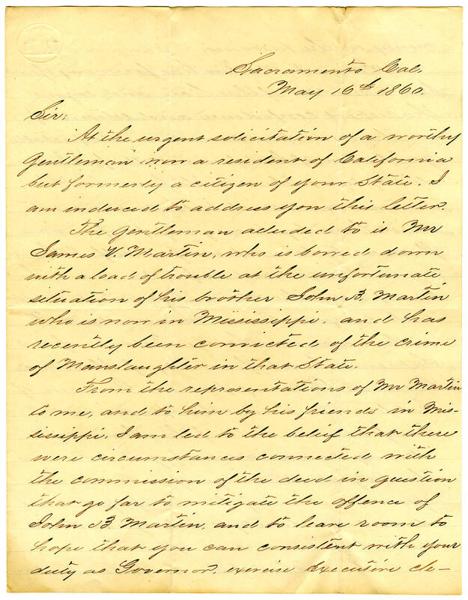 Sacramento Cal.
May 16th 1860.
Sir:
At the urgent solicitation of a worthy
Gentleman now a resident of California
but formerly a citizen of your State. I
am induced to address you this letter.
The gentleman alluded to is Mr
James V. Martin, who is borred down
with a load of trouble at the unfortunate
situation of his brother John B. Martin
who is now in Mississippi. and has
recently been convicted of the crime
of Manslaughter in that State.
From the representations of Mr Martin
to me, and to him by his friends in Mis-
sissippi. I am led to the belief that there
were circumstances connected with
the commission of the deed in question
that go far to mitigate the offence of
John B. Martin. and to leave room to
hope that you can consistent with your
duty as Governor. exercise Executive cle-